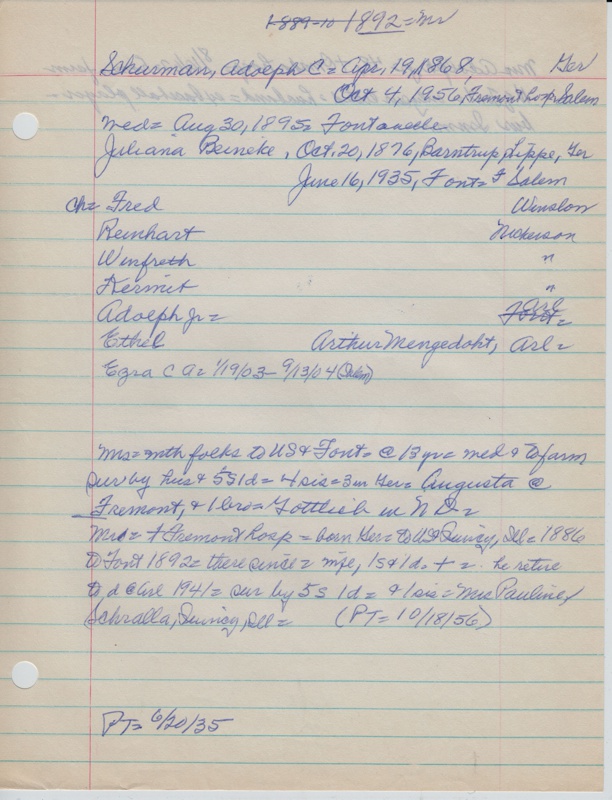 1889-10 1892=Mr
Schurman, Adolph C= Apr, 19, 1868, Ger
Oct 4, 1956, Fremont hosp Salem
med= Aug 30, 1895= Fontanelle
Juliana Beineke, Oct, 20, 1876, Barntrup, Lippe, Ger
June 16, 1935, Font= + Salem
Ch= Fred Winslow
Reinhart Nickerson
Winfreth "
Kermit "
Adolph Jr= Font= Arl
Ethel Arthur Mengedoht, Arl=
Ezra C A= 1/19/03- 9/13/04 (Salem)
Mrs= mth folks to US & Font= @ 13 yr= med & to farm
sur by hus & 5S 1d= 4 sis= 3 in Ger= Augusta @
Fremont, & 1 bro= Gottlieb in N D=
Mr= + Fremont hosp = born Ger= to US Quincy, Ill= 1886
to Font 1892= there since= wife, 1s & 1d. + = he retire
to d @ Arl 1941= sur by 5s 1d= & 1 sis= Mrs Pauline
Schralla, Quincy, Ill= (PT= 10/18/56)
PT= 6/20/35